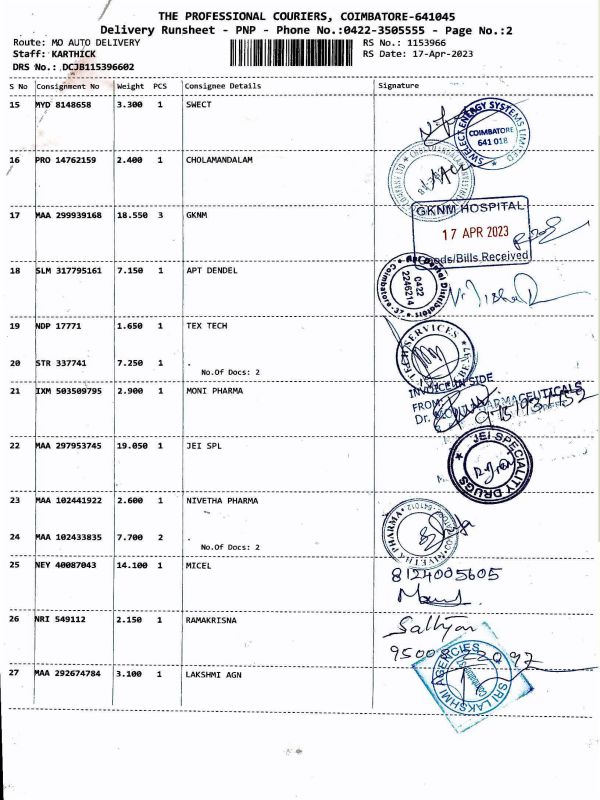 THE PROFESSIONAL COURIERS, COIMBATORE-641045
Delivery Runsheet - PNP - Phone No.:0422-3505555 - Page No.:2
Route: MO AUTO DELIVERY RS No.: 1153966
Staff: KARTHICK RS Date: 17-Apr-2023
DRS No.: DCJB115396602
S No Consignment No Weight PCS Consignee Details Signature
15 MYD 8148658 3.300 1 SWECT
SWELECT ENERGY SYSTEMS LIMITED
COIMBATORE
641 018
16 PRO 14762159 2.400 1 CHOLAMANDALAM
17 MAA 299939168 18.550 3 GKNM
GKNM HOSPITAL
17 APR 2023
Goods/Bills Received
18 SLM 317795161 7.150 1 APT DENDEL
Apt Dental Distributors
Coimbatore-37
0422
2246214
19 NDP 17771 1.650 1 TEX TECH
TECH SERVICES
20 STR 337741 7.250 1 .
No.Of Docs: 2
21 IXM 503509795 2.900 1 MONI PHARMA
INVOICE IN SIDE
FROM:
Dr. PHARMACEUTICALS
22 MAA 297953745 19.050 1 JEI SPL
JEI SPECIALITY DRUGS
23 MAA 102441922 2.600 1 NIVETHA PHARMA
NIVETHA PHARMA
24 MAA 102433835 7.700 2 .
No.Of Docs: 2
25 NEY 40087043 14.100 1 MICEL
8124005605
26 NRI 549112 2.150 1 RAMAKRISNA
27 MAA 292674784 3.100 1 LAKSHMI AGN
SRI LAKSHMI AGENCIES